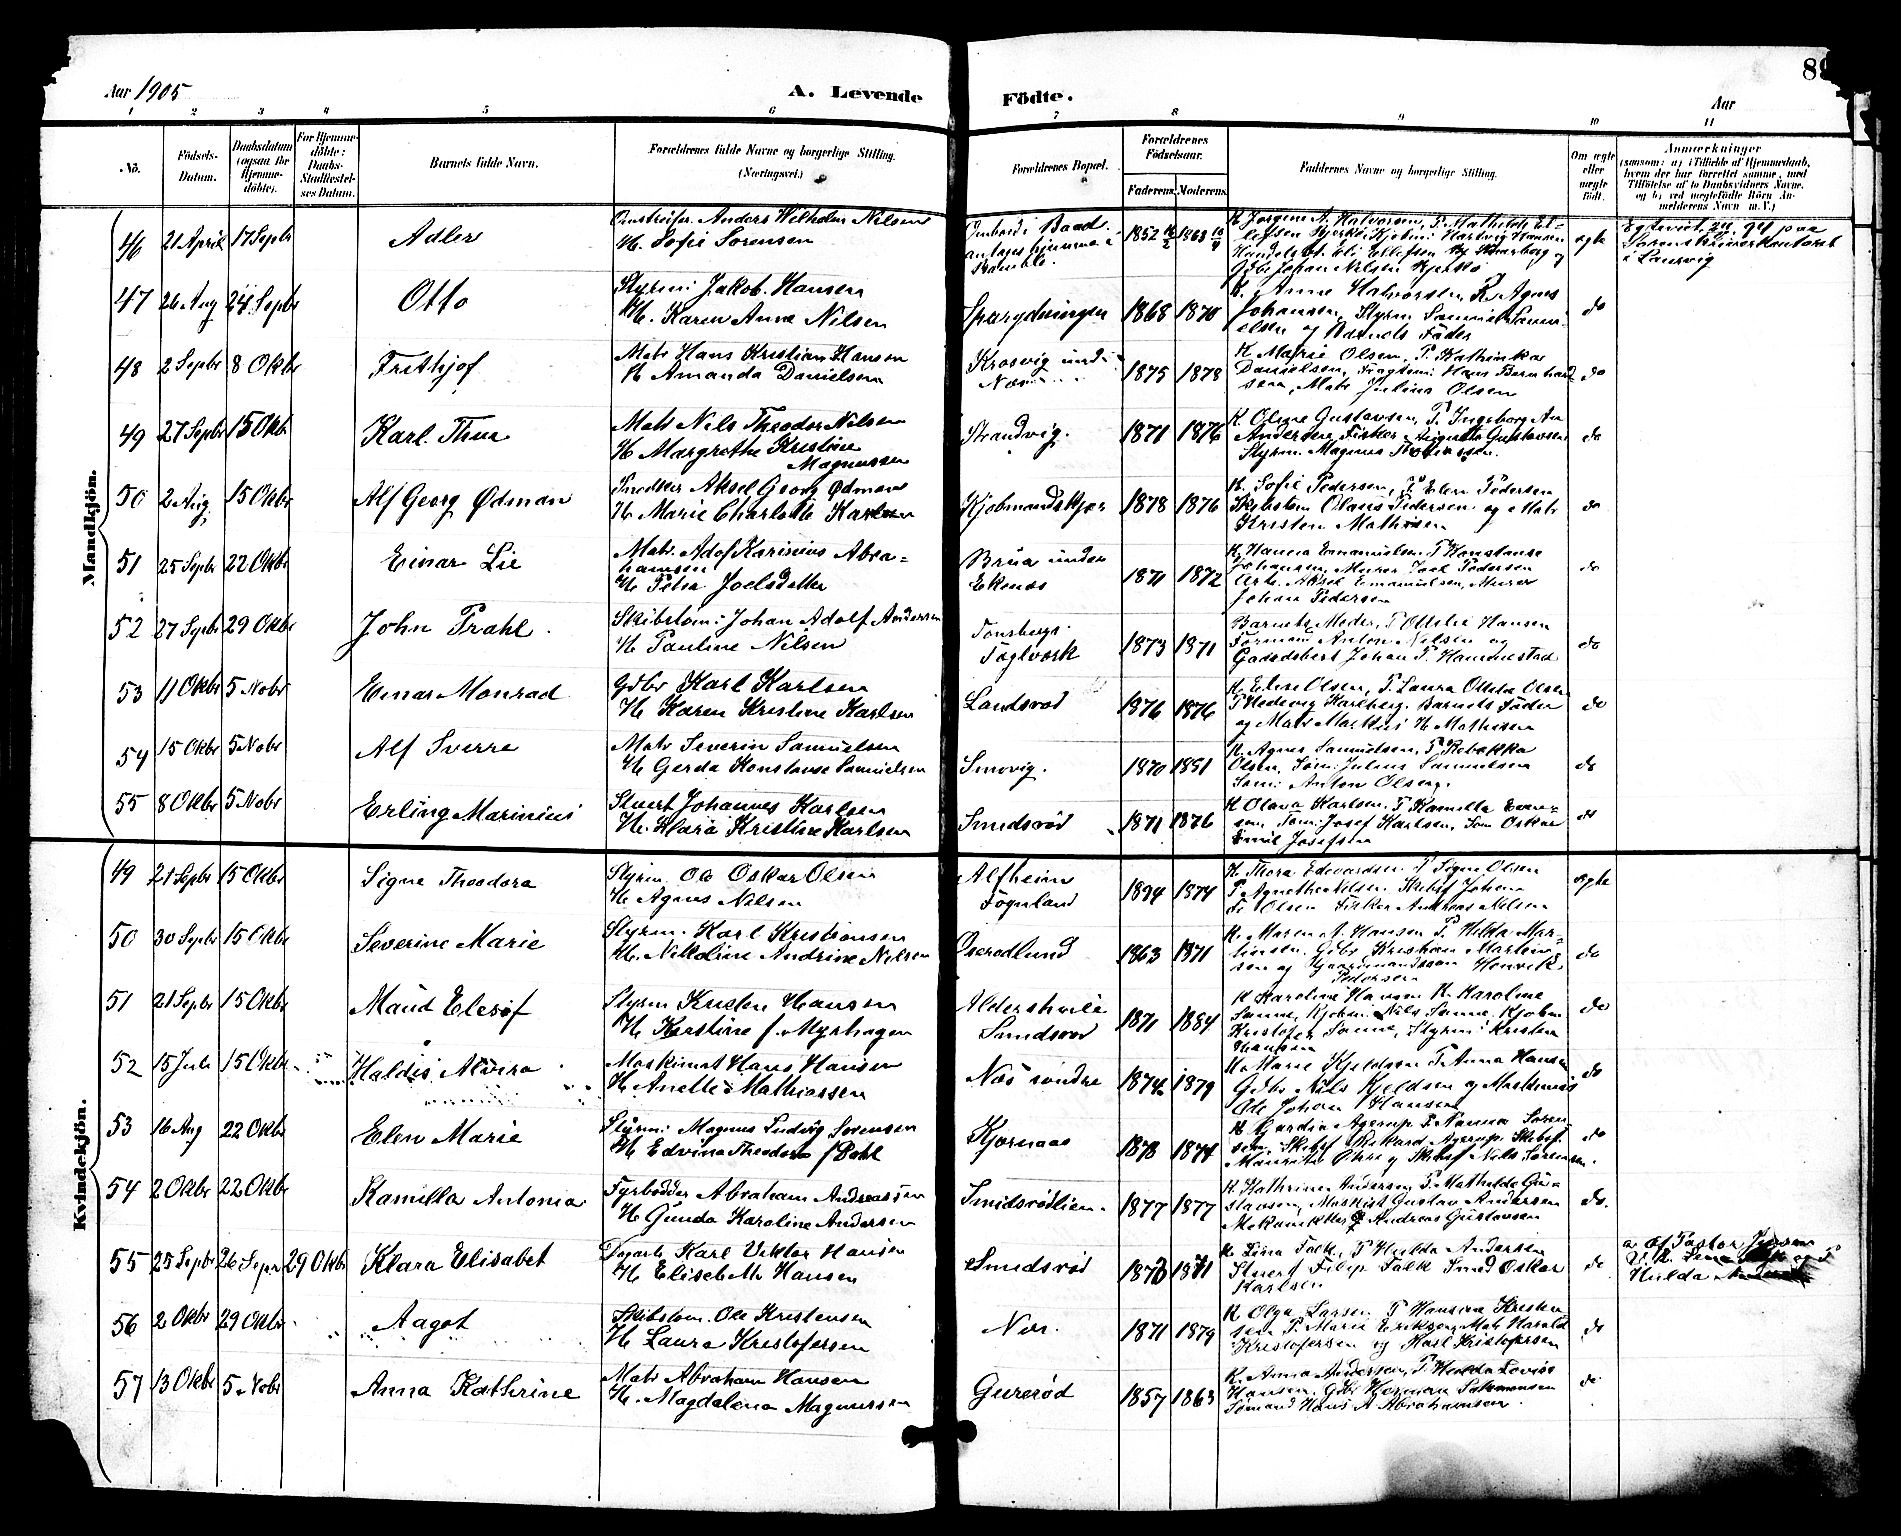 Aar 1905
A. Levende
Födte.
89
Aar
1 2 3 4 5 6 7 8 9 10 11
No.
Födsels-
Datum.
Daabsdatum
(ogsaa for
Hjemme-
döbte).
For Hjemme-
döbte:
Daabs-
Stadfæstel-
ses Datum.
Barnets fulde Navn.
Forældrenes fulde Navne og borgerlige Stilling.
(Næringsvei.)
Forældrenes Bopæl.
Forældrenes
Födselsaar.
Faderens. Moderens.
Faddernes Navne og borgerlige Stilling.
Om ægte
eller
uægte
födt.
Anmærkninger
(saasom: a) i Tilfælde af Hjemmedaab,
hvem der har forrettet samme, med
Tilföielse af to Daabsvidners Navne,
og b) ved uægtefödte Börn An-
melderens Navn m. V.)
Mandkjön.
46 21 April 17 Septr Adler
Anders Wilhelm Nilsen
H. Sofie Sorensen
Bamble.
1852 1863
ægte
i Laurvig
47 26 Aug 24 Septr Otto
Styrm: Jakob Hansen
H. Karen Anne Nilsen
1868 1870
K. Anne Halvorsen, K. Agnes
Johansen, Styrm Samuel Samu-
elsen og Barnets Fader
do
48 2 Septr 8 Oktbr Frithjof
Matr Hans Kristian Hansen
H Amanda Danielsen
1875 1878
K Marie Olsen, P. Kathinka
Danielsen, Hans Bernhard
sen, Matr Julius Olsen
do
49 27 Septr 15 Oktb Karl Thue
Matr Nils Theodor Nilsen
H Margrethe Kristine
Magnussen
Strandvig.
1871 1876
K Olene Gustavsen, P. Ingeborg An
Andersen Fisker August Gustavsen
Styrm. Magnus
do
50 2 Aug 15 Oktbr Alf Georg Ødman
Snedker Aksel Georg Ødman
H Marie Charlotte Karlsen
Kjøbmandskjær
1878 1876
K. Sofie Pedersen, P Elen Pedersen
Skibstøm Olaus Pedersen og Matr
Kristen Mathisen
do
51 25 Septr 22 Oktbr Einar Lie
Matr. Adolf Karinius Abra-
hamsen
H Petra Joelsdatter
Brua under
Ekenes
1871 1872
K Hanna Emanuelsen P Konstanse
Johansen, Murer Joel Pedersen
Arb. Aksel Emanuelsen, Murer
Johan Pedersen
do
52 27 Septr 29 Oktbr John Prahl
Skibstøm: Johan Adolf Andersen
H Pauline Nilsen
Tønsbergs
Teglverk
1873 1871
Barnets Moder, P Ottilie Hansen
Formand Anton Nilsen og
Johan P. Hammestad
do
53 11 Oktbr 5 Nobr Einar Monrad
Gdbr Karl Karlsen
H Karen Kristine Karlsen
Landsrød
1876 1876
K. Elise Olsen, P. Laura Ottilia Olsen
P Hedevig Karlberg. Barnets Fader
og Matr Matthis H Mathisen
do
54 15 Oktbr 5 Nobr Alf Sverre
Matr Severin Samuelsen
H Gerda Konstanse Samuelsen
Smovig.
1870 1881
K. Agnes Samuelsen, P Rebekka
Olsen, Søm: Julius Samuelsen
Søm: Anton Olsen.
do
55 8 Oktbr 5 Nobr Erling Marinius
Stuert Johannes Karlsen
H. Klara Kristine Karlsen
Smidsrød
1871 1876
K Olava Karlsen, P Kamilla Evan-
sen Søm: Josef Karlsen, Søm Oskar
Emil Josefsen
do
Kvindekjön.
49 21 Septr 15 Oktbr Signe Theodora
Styrm. Ole Oskar Olsen
H Agnes Nilsen
Alfheim
Føynland
1874 1874
K Thora Edvardsen. P Signe Olsen
P Agnethe Nilsen. Skibsf Johan
Fr Olsen Fisker Andreas Nilsen
ægte
50 30 Septr 15 Oktbr Severine Marie
Styrm. Karl Kristiansen
H. Nikoline Andrine Nilsen
Oserødlund
1863 1871
K. Maren A. Hansen P. Hilda Mar-
tinsen. Gdbr Kristian Martin-
sen og Henrik
Pedersen
do
51 21 Septr 15 Oktbr Maud Elesof
Styrm Kristen Hansen
H Kristine f. Myhagen
Aldershvile
Smidsrød
1871 1884
K Karoline Hansen K. Karoline
Sanne, Kjøbm. Nils Sanne. Kjøbm
Kristofer Sanne, Styrm: Kristen
Hansen
do
52 15 Juli 15 Oktbr Haldis Alvira
Maskinist Hans Hansen
H Anette Mathiassen
Næs søndre
1874 1879
K. Marie Kjeldsen P Anna Hansen
Gdbr Nils Kjeldsen og Maskinist
Ole Johan Hansen
do
53 16 Aug 22 Oktbr Elen Marie
Styrm: Magnus Ludvig Sorensen
H Edvina Theodora f Dahl
Kjørnaas
1878 1874
P. Nanna Soren-
sen. Skibsf Rikard Agerup. Skibsf.
Mauritz Ohre og Skibsf Nils Sorensen.
do
54 2 Oktbr 22 Oktbr Kamilla Antonia
Fyrbøder Abraham Andreassen
H Gunda Karoline Andersen
Smidsrødlien.
1877 1877
K. Kathrine Andersen, P. Mathilde Gu-
stavsen, Maskist Gustav Andersen
Andreas Gustavsen
do.
55 25 Septr 26 Septr 29 Oktbr Klara Elisabet
Karl Viktor Hansen
H Elisabeth Hansen
Smidsrød
1870 1871
K Lina Falk, P Hulda Andersen
Stuert Filip Falk Smed Oskar
Karlsen
do
a. Af Pastor
K. Lina og P
Hulda
56 2 Oktbr 29 Oktbr Aagot
Skibstøm. Ole Kristensen
H Laura Kristofersen
1871 1879
K Olga Larsen P Hansine Kristen
sen P. Marie Eriksen, Matr Harald
Kristofersen og Karl Kristofersen
do
57 13 Oktbr 5 Nobr Anna Kathrine
Matr Abraham Hansen
H. Magdalena Magnussen
Gurerød
1857 1863
K. Anna Andersen, P. Hulda Lovise
Hansen. Gdbr Herman Salomonsen
Sømand Hans A Abrahamsen
do